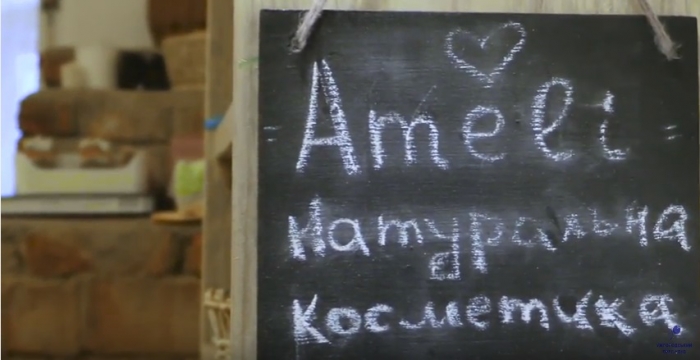 = Ameli =
Натуральна
косметика